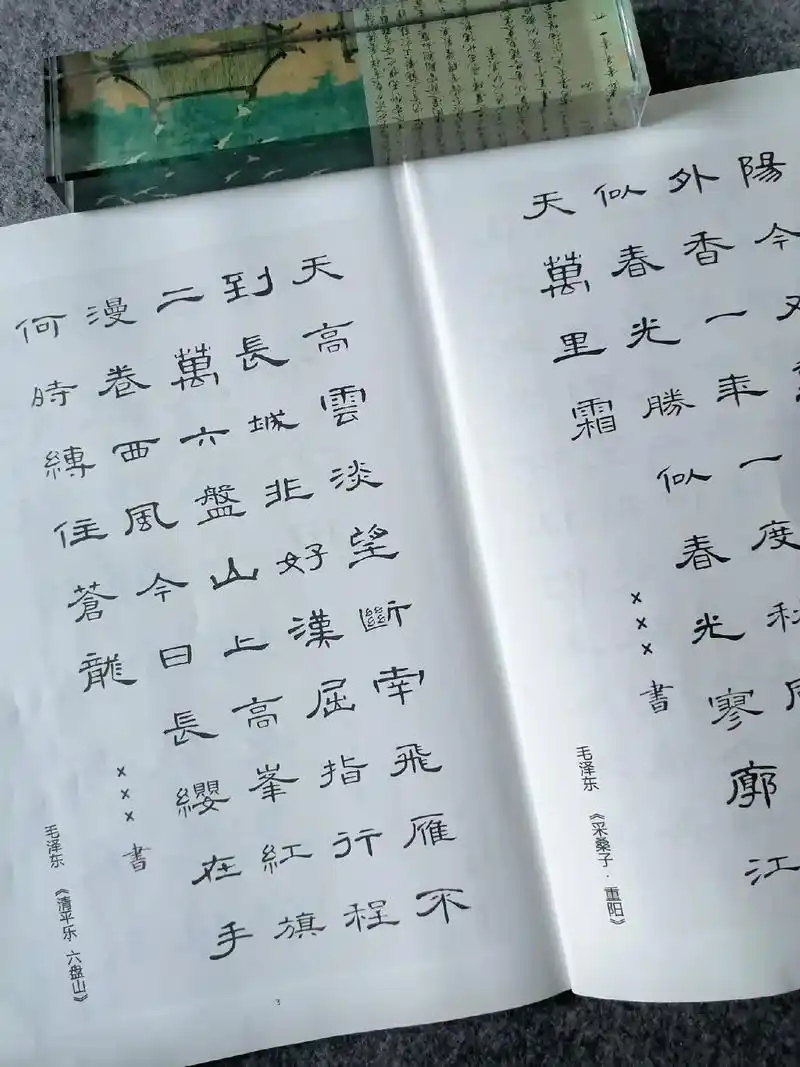 陽今又
外香一年一度秋
似春光勝似春光寥廓江
天萬里霜
×××書
毛泽东 《采桑子·重阳》
天高雲淡望斷南飛雁不
到長城非好漢屈指行程
二萬六盤山上高峯紅旗
漫卷西風今日長纓在手
何時縛住蒼龍
×××書
毛泽东 《清平乐 六盘山》
3